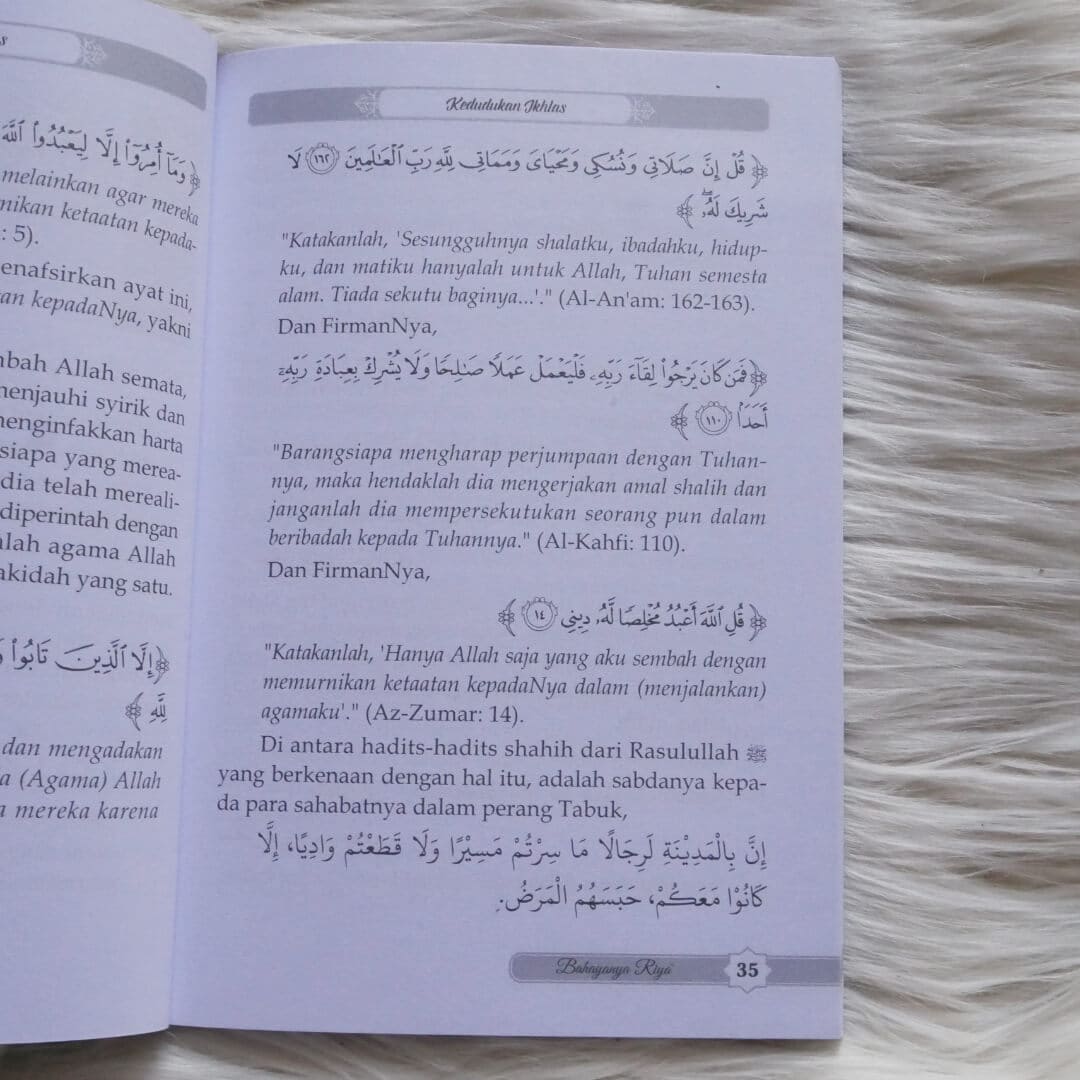 s
وَمَآ أُمِرُوٓا۟ إِلَّا لِيَعْبُدُوا۟ ٱللَّهَ
melainkan agar mereka
nikan ketaatan kepada-
: 5).
enafsirkan ayat ini,
an kepadaNya, yakni
mbah Allah semata,
menjauhi syirik dan
menginfakkan harta
siapa yang merea-
dia telah mereali-
diperintah dengan
alah agama Allah
akidah yang satu.
﴿إِلَّا ٱلَّذِينَ تَابُوا۟ وَ
لِلَّهِ ﴾
dan mengadakan
a (Agama) Allah
a mereka karena
Kedudukan Ikhlas
﴿ قُلْ إِنَّ صَلَاتِى وَنُسُكِى وَمَحْيَاىَ وَمَمَاتِى لِلَّهِ رَبِّ ٱلْعَـٰلَمِينَ ١٦٢ لَا
شَرِيكَ لَهُۥ ۖ ﴾
"Katakanlah, 'Sesungguhnya shalatku, ibadahku, hidup-
ku, dan matiku hanyalah untuk Allah, Tuhan semesta
alam. Tiada sekutu baginya...'." (Al-An'am: 162-163).
Dan FirmanNya,
﴿ فَمَن كَانَ يَرْجُوا۟ لِقَآءَ رَبِّهِۦ فَلْيَعْمَلْ عَمَلًا صَـٰلِحًا وَلَا يُشْرِكْ بِعِبَادَةِ رَبِّهِۦٓ
أَحَدًۢا ١١٠ ﴾
"Barangsiapa mengharap perjumpaan dengan Tuhan-
nya, maka hendaklah dia mengerjakan amal shalih dan
janganlah dia mempersekutukan seorang pun dalam
beribadah kepada Tuhannya." (Al-Kahfi: 110).
Dan FirmanNya,
﴿ قُلِ ٱللَّهَ أَعْبُدُ مُخْلِصًا لَّهُۥ دِينِى ١٤ ﴾
"Katakanlah, 'Hanya Allah saja yang aku sembah dengan
memurnikan ketaatan kepadaNya dalam (menjalankan)
agamaku'." (Az-Zumar: 14).
Di antara hadits-hadits shahih dari Rasulullah ﷺ
yang berkenaan dengan hal itu, adalah sabdanya kepa-
da para sahabatnya dalam perang Tabuk,
إِنَّ بِالْمَدِيْنَةِ لَرِجَالًا مَا سِرْتُمْ مَسِيْرًا وَلَا قَطَعْتُمْ وَادِيًا، إِلَّا
كَانُوْا مَعَكُمْ، حَبَسَهُمُ الْمَرَضُ.
Bahayanya Riya'
35